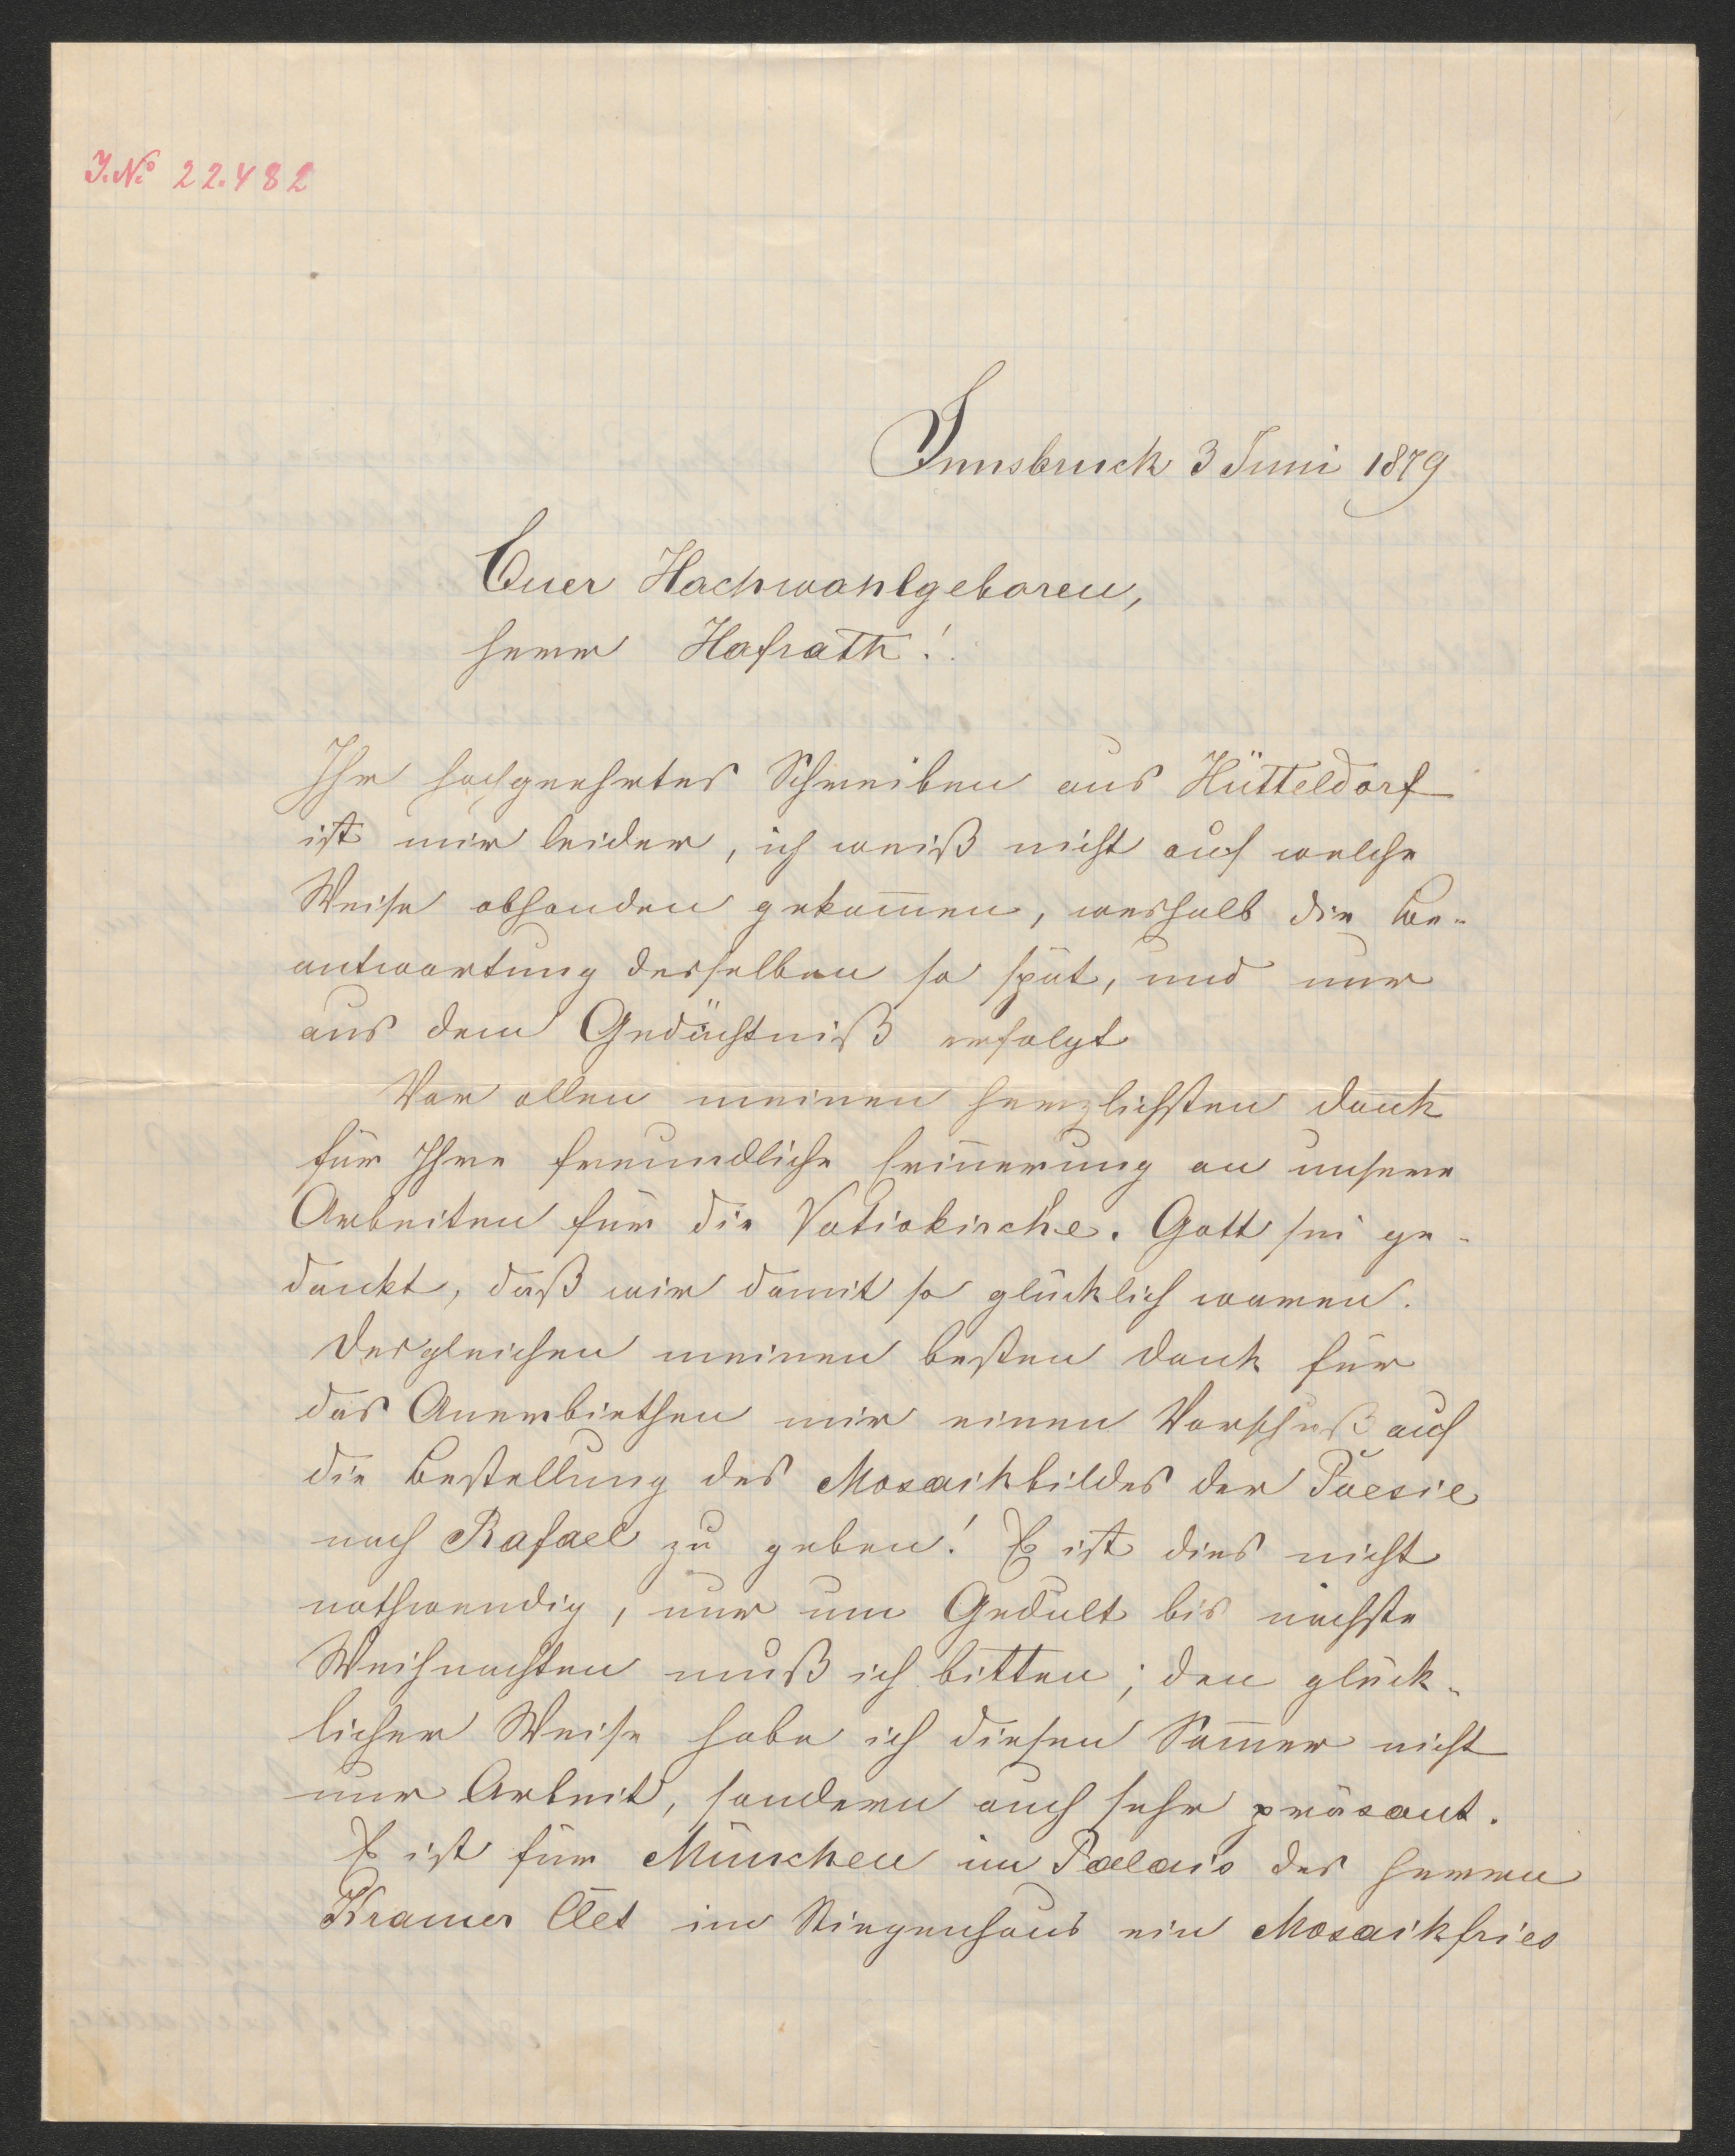 J.№ 22.482
Innsbruck 3 Juni 1879
Euer Hochwohlgeboren,
Herr Hofrath!
Ihr hochgeehrtes Schreiben aus Hütteldorf
ist mir leider, ich weiß nicht auf welche
Weise abhanden gekom̅en, weshalb die Be-
antwortung desselben so spät, und nur
aus dem Gedächtniß erfolgt
Vor allen meinen herzlichsten Dank
für Ihre freundliche Erin̅erung an unsere
Arbeiten für die Votivkirche. Gott sei ge-
dankt, daß wir damit so glücklich waren.
Desgleichen meinen besten Dank für
das Anerbiethen mir einen Vorschuß auf
die Bestellung des Mosaikbildes der Poesie
nach Rafael zu geben! Es ist dies nicht
nothwendig, nur um Gedult bis nächste
Weihnachten muß ich bitten; den glück-
licher Weise habe ich diesen Som̅er nicht
nur Arbeit, sondern auch sehr präsant.
Es ist für München im Palais des Herren
Kramer Clet im Stiegenhaus ein Mosaikfries